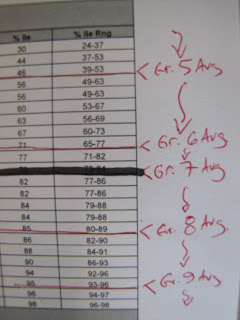 %ile %ile Rng
30 24-37
44 37-53
46 39-53 Gr. 5 Avg
56 49-63
56 49-63
60 53-67
63 56-69
67 60-73
71 65-77 Gr. 6 Avg
77 71-82
Gr. 7 Avg
82 77-86
82 77-86
84 79-88
84 79-88
85 80-89 Gr. 8 Avg
86 82-90
88 84-91
90 86-93
94 92-96
95 93-96 Gr. 9 Avg
96 94-97
98 96-98